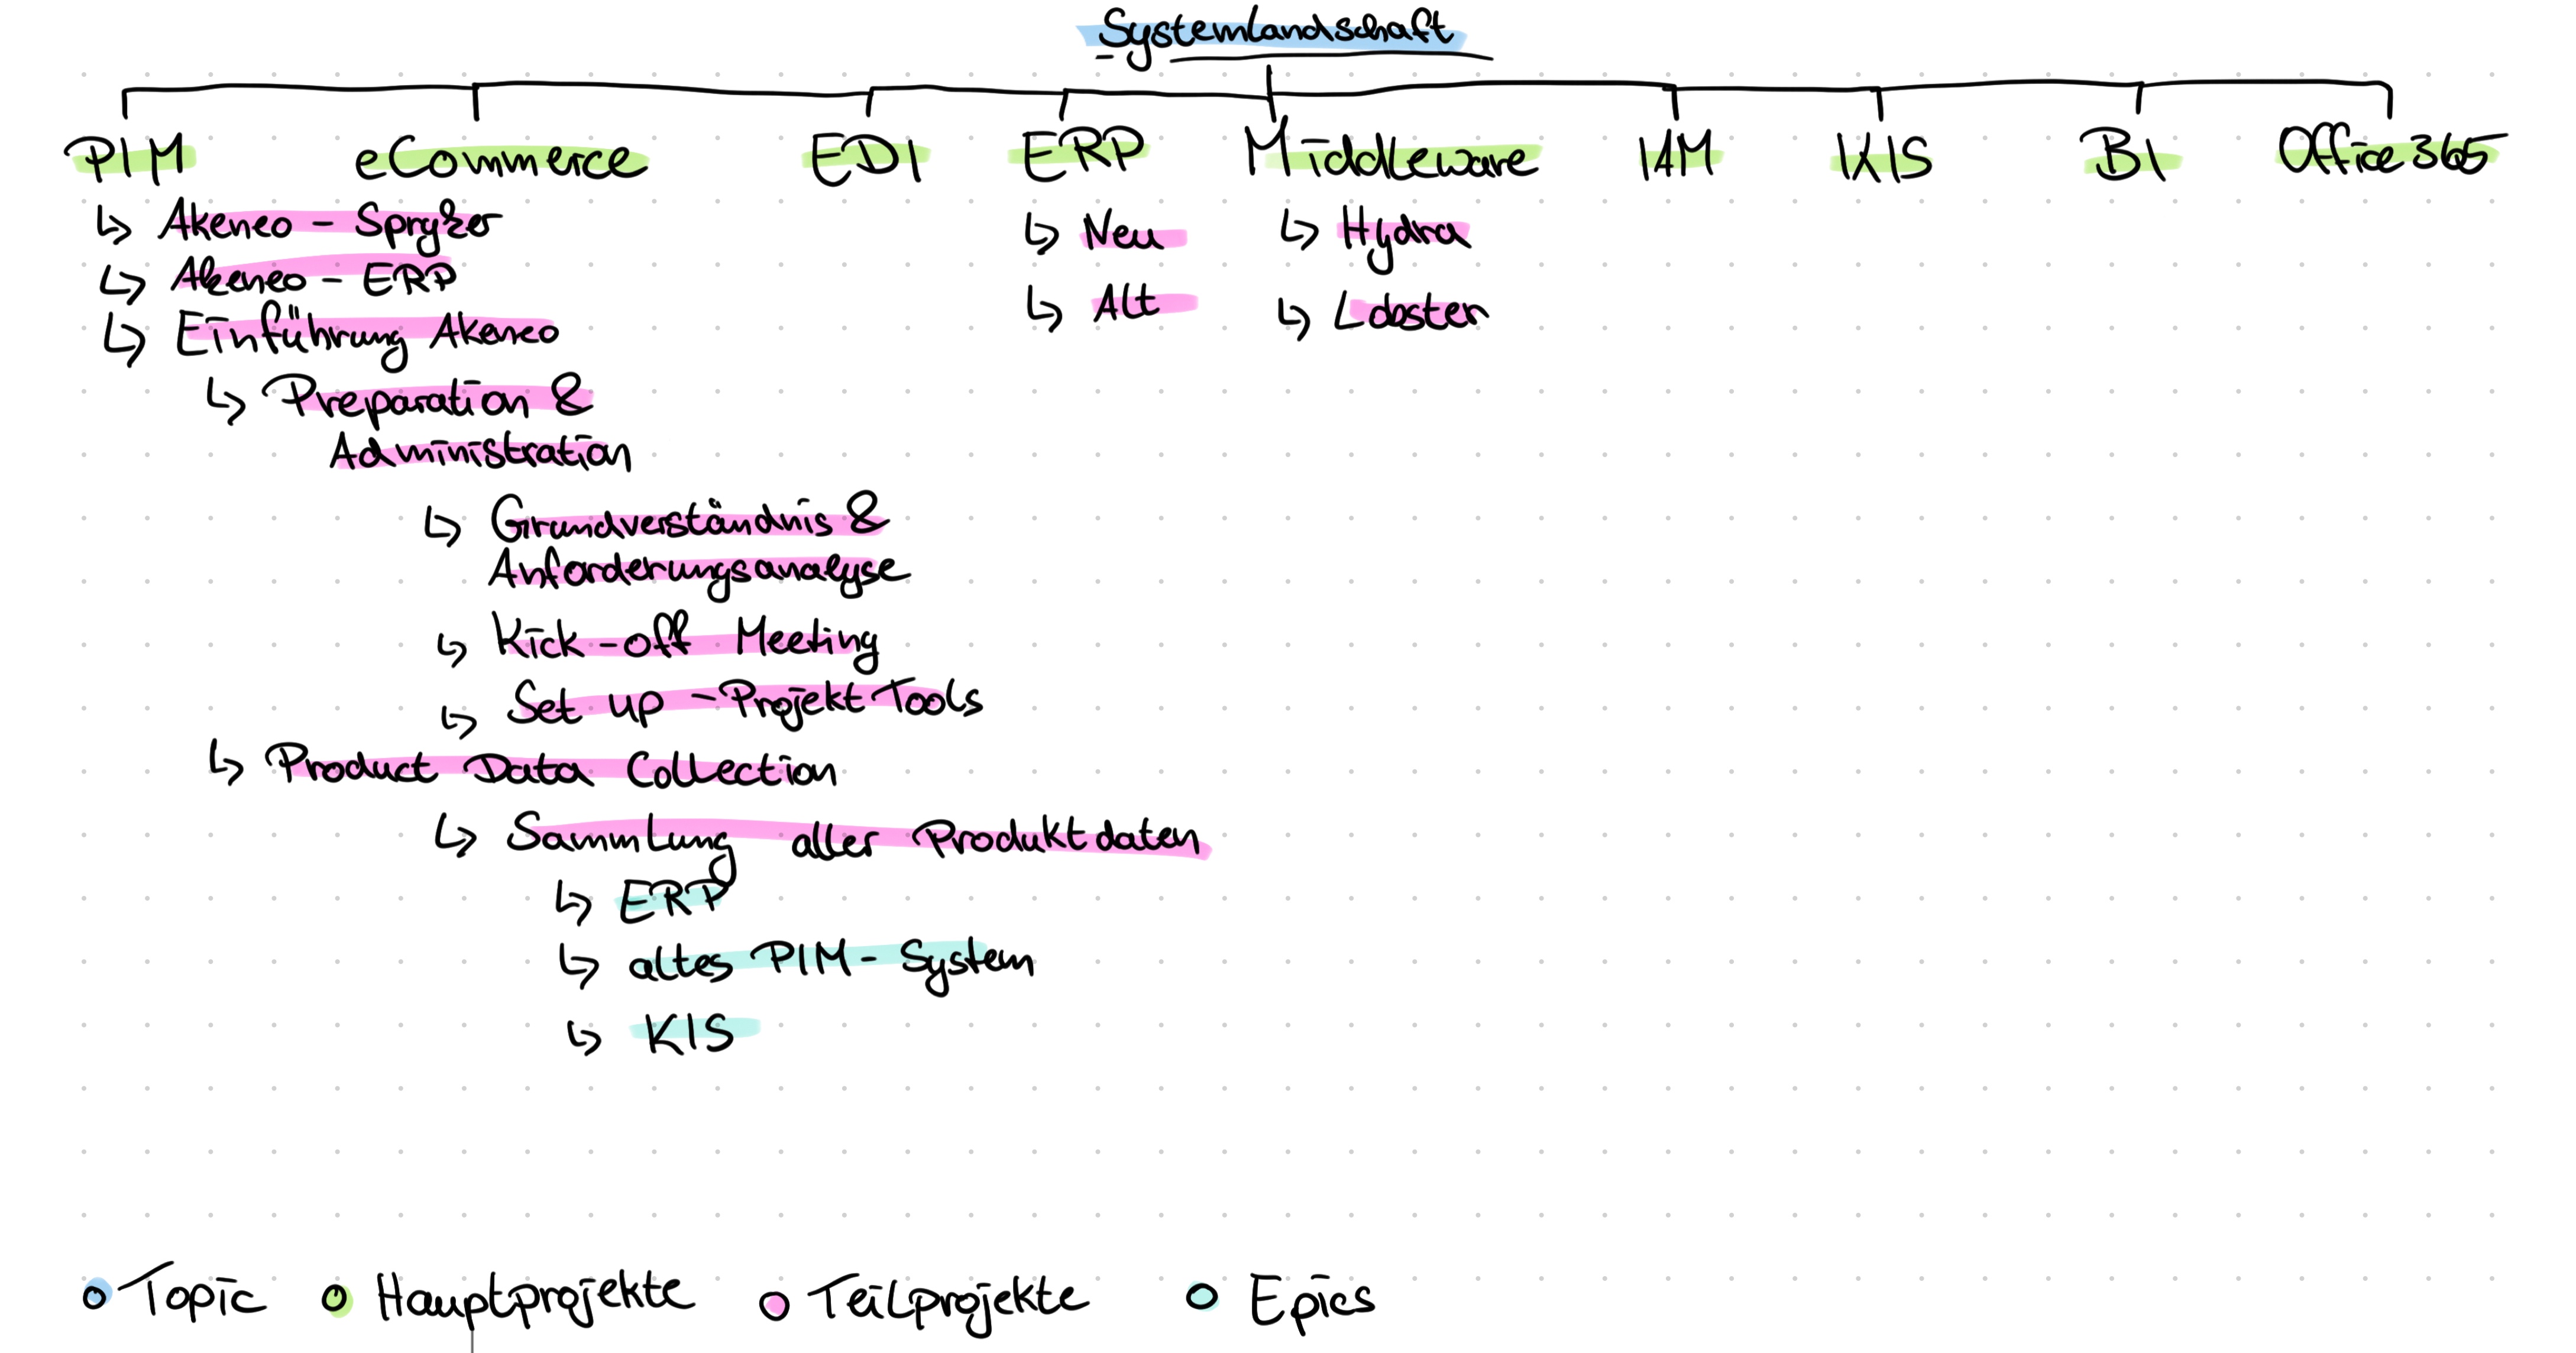 Systemlandschaft
PIM eCommerce EDI ERP Middleware IAM KIS BI Office 365
↳ Akeneo - Spryker ↳ Neu ↳ Hydra
↳ Akeneo - ERP
↳ Einführung Akeneo ↳ Alt ↳ Lobster
↳ Preparation &
Administration
↳ Grundverständnis &
Anforderungsanalyse
↳ Kick-off Meeting
↳ Set up - Projekt Tools
↳ Product Data Collection
↳ Sammlung aller Produktdaten
↳ ERP
↳ altes PIM-System
↳ KIS
Topic Hauptprojekte Teilprojekte Epics